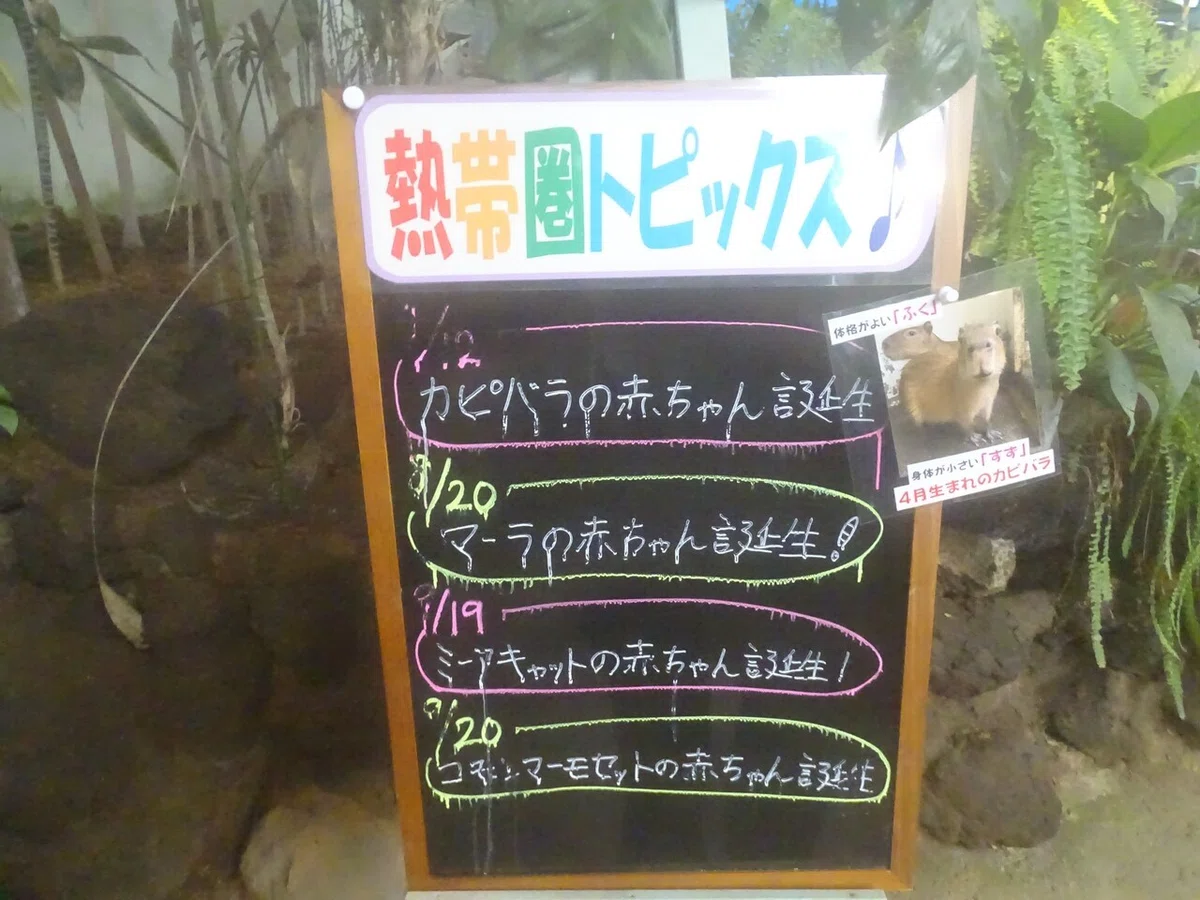 熱帯圏トピックス♪
カピバラの赤ちゃん誕生
体格がよい「ふく」
身体が小さい「すず」
4月生まれのカピバラ
/20
マーラの赤ちゃん誕生!
/19
ミーアキャットの赤ちゃん誕生!
9/20
コモンマーモセットの赤ちゃん誕生